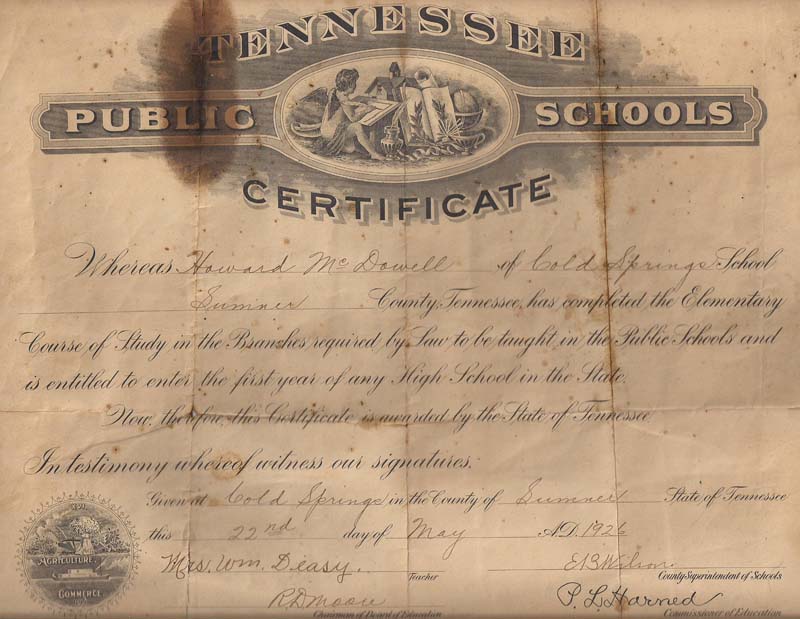 TENNESSEE
PUBLIC SCHOOLS
CERTIFICATE
Whereas Howard McDowell of Cold Springs School
Sumner County, Tennessee, has completed the Elementary
Course of Study in the Branches required by Law to be taught in the Public Schools and
is entitled to enter the first year of any High School in the State.
Now, therefore, this Certificate is awarded by the State of Tennessee.
In testimony whereof witness our signatures.
Given at Cold Springs in the County of Sumner State of Tennessee
this 22nd day of May A.D. 1926
AGRICULTURE
COMMERCE
Mrs. Wm. Deasy. E B Wilson
Teacher County Superintendent of Schools
R D Moore P. L. Harned
Chairman of Board of Education Commissioner of Education